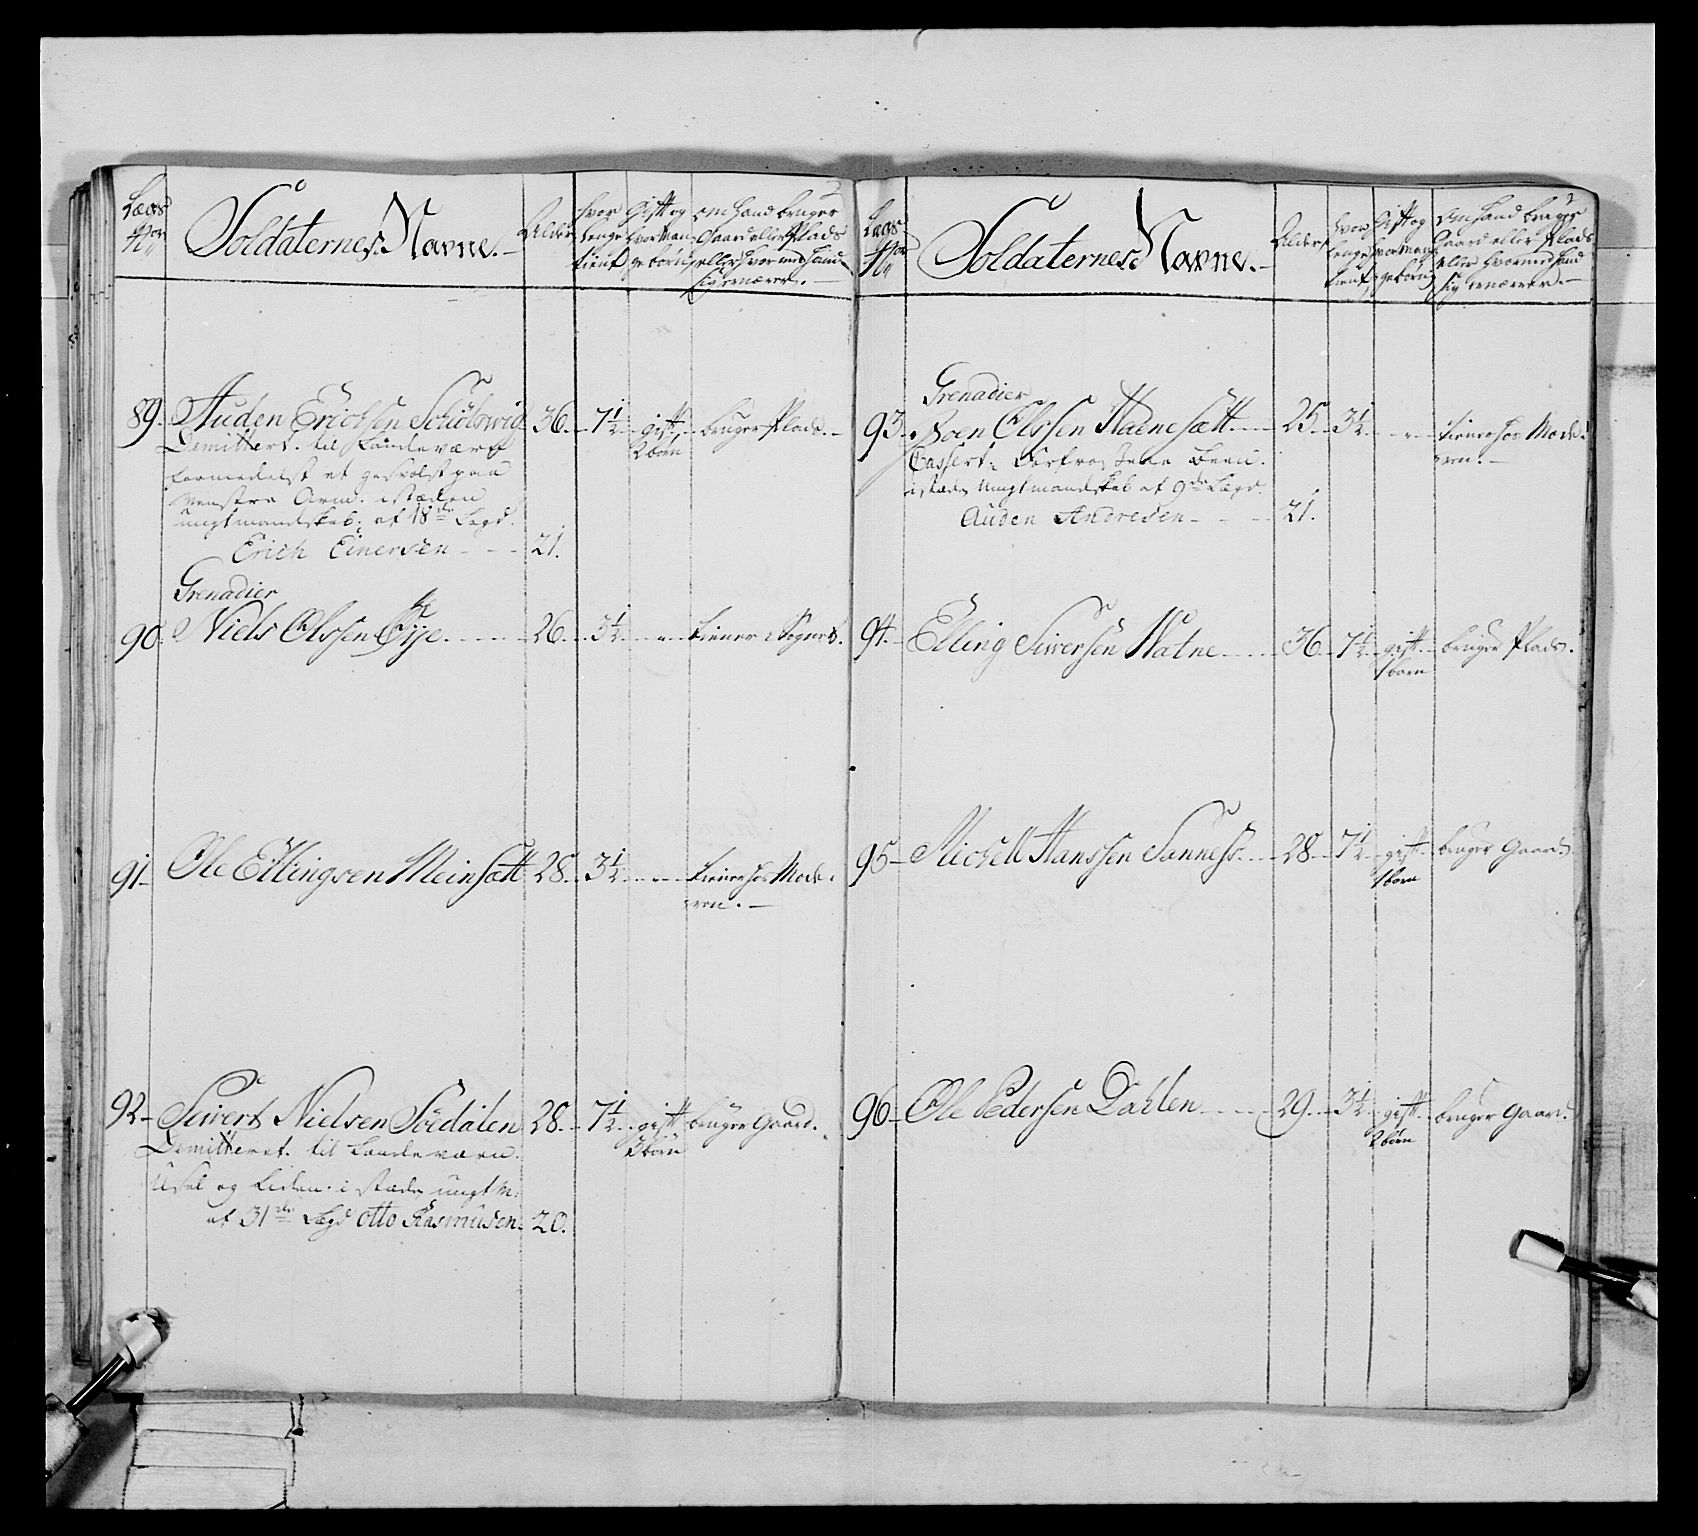 Lægs No
Soldaternes Navne.
Alder
hvor lenge tient
Gift og hvor mange børn
om hand bruger Gaard eller Plads eller hvormed hand sig ernærer.
89. Auden Erichsen 36. 7½. gift 2 børn bruger Plads.
Demittert. til Landeværn
formedelst et paa
venstre Arm. istæden
ungt mandskab; af 18de Lægd.
Erich Einersen - - - 21.
Grenadier
90. Niels Olssen Øye. 26. 3½. " tiener i Sognet.
91. Ole Ellingsen Meinsætt 28. 3½. " tiener hos Mode-
ren.
92. Sivert Nielsen Sørdalen 28. 7½. gift 3 børn bruger Gaard.
Demitteret. til Landeværn.
Usel og Liden. i stæden ungt M:
af 31de Lægd Otto Rasmusen. 20.
Lægs No
Soldaternes Navne.
Alder
hvor lenge tient
Gift og hvor mange børn
om hand bruger Gaard eller Plads eller hvormed hand sig ernærer.
Grenadier
93. Roen Olssen Hatnesætt 25. 3½. " tiener hos Mode-
ren.
Cassert; Been.
istæden ungt mandskab af 9de Lægd.
Auden Andresen - - - 21.
94. Elling Siversen Watne 36. 7½. gift 1 barn bruger Plads.
95. Michell Hanssen Sanness. 28. 7½. gift 1 barn bruger Gaard.
96. Ole Pedersen Dahlen 29. 3½. gift 2 børn bruger Gaard.